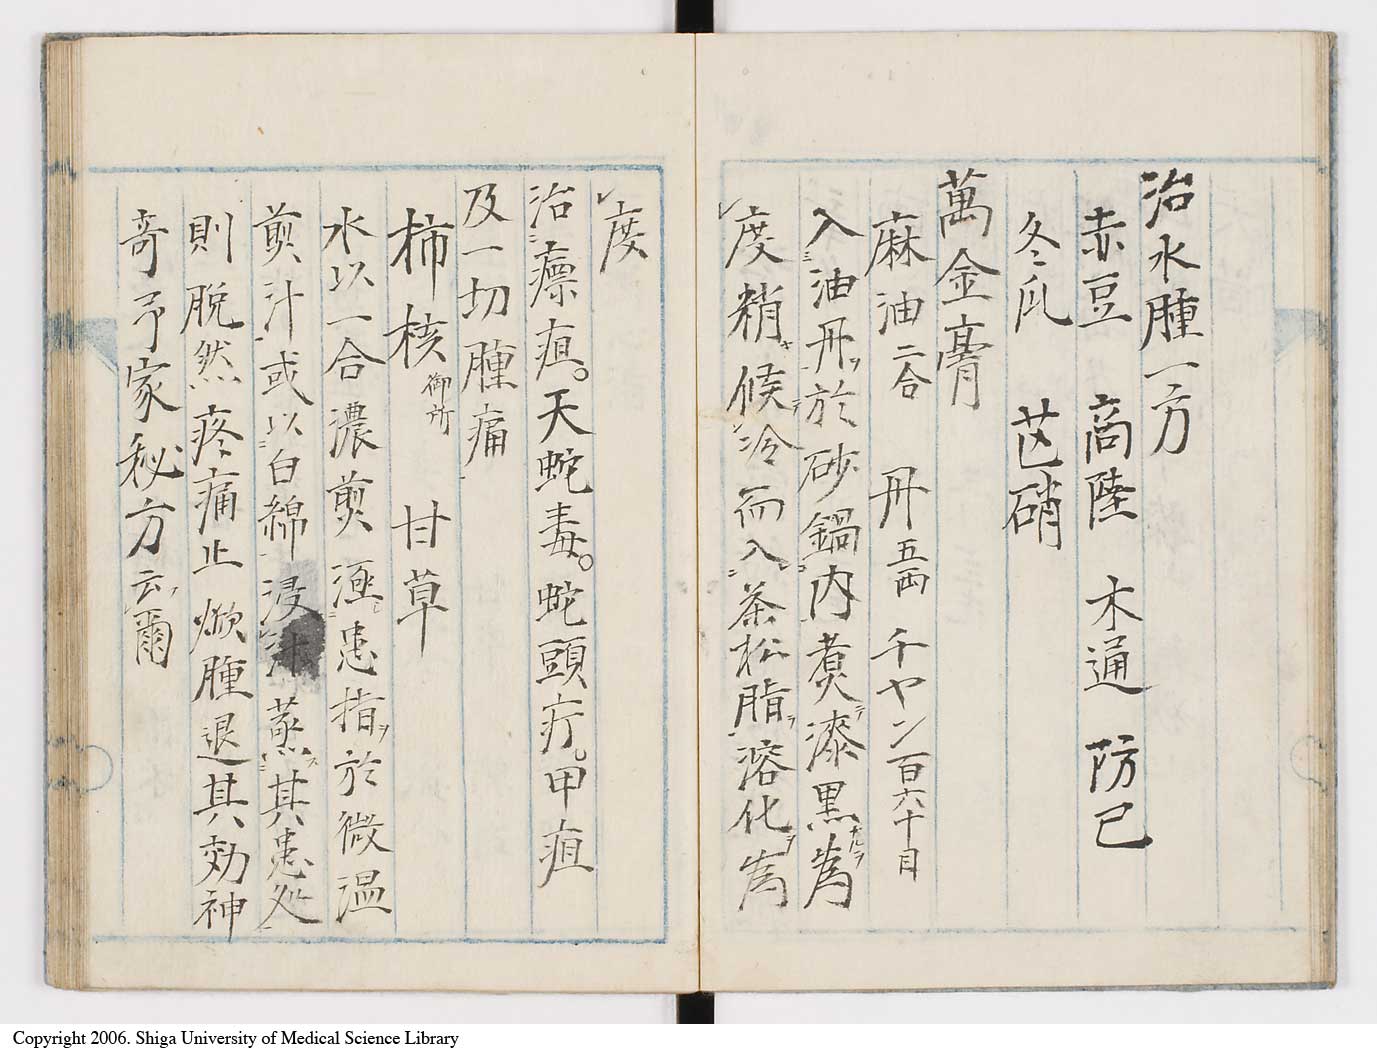 治水腫一方
赤豆 商陸 木通 防已
冬瓜 芒硝
萬金膏
麻油二合 丹五両 チヤン百六十目
入油丹ヲ於砂鍋内煑テ漆黒ナルヲ為
度稍キ候テ冷而入茶松脂ヲ溶化ヲ為
度
治瘭疽。天蛇毒。蛇頭疔。甲疽
及一切腫痛
柿核御所 甘草
水以一合濃煎漚患指ヲ於微温
煎汁或以白綿浸汁蒸其患処
則脱然疼痛止焮腫退其効神
奇予家秘方云爾
Copyright 2006. Shiga University of Medical Science Library